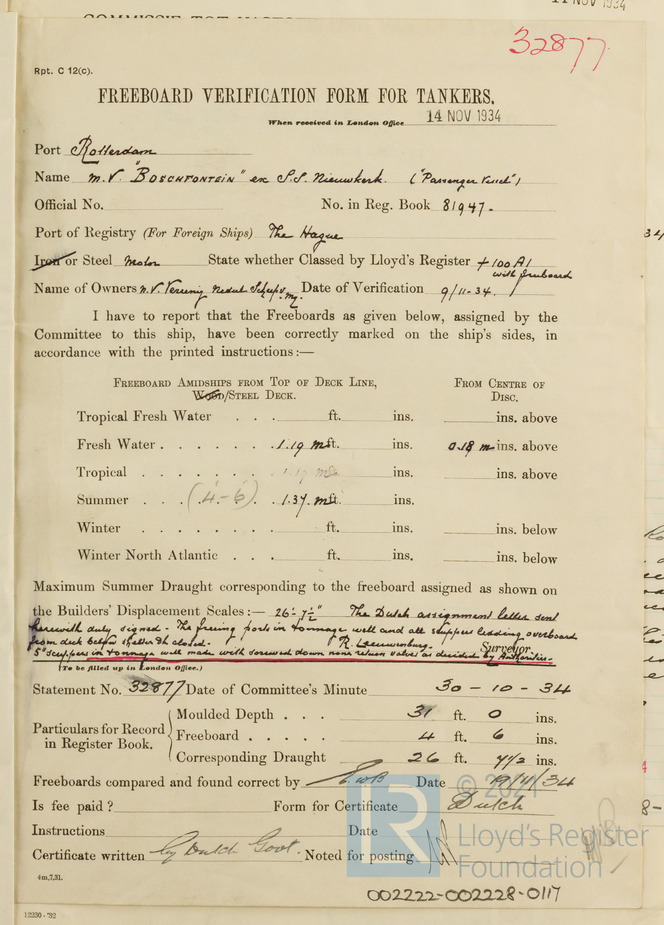 14 NOV 1934
32877
Rpt. C 12(c).
FREEBOARD VERIFICATION FORM FOR TANKERS.
When received in London Office 14 NOV 1934
Port Rotterdam
Name M.V. "BOSCHFONTEIN" ex S.S. Nieuwkerk. ("Passenger Vessel")
Official No. No. in Reg. Book 81947.
Port of Registry (For Foreign Ships) The Hague
Iron or Steel Motor State whether Classed by Lloyd's Register +100A1
with freeboard
Name of Owners N.V. Vereenig Nederl. Scheepv. My. Date of Verification 9/11-34.
I have to report that the Freeboards as given below, assigned by the
Committee to this ship, have been correctly marked on the ship's sides, in
accordance with the printed instructions:—
FREEBOARD AMIDSHIPS FROM TOP OF DECK LINE, FROM CENTRE OF
WOOD/STEEL DECK. DISC.
Tropical Fresh Water . . . ft. ins. ins. above
Fresh Water . . . . . . 1.19 m ft. ins. 0.18 m ins. above
Tropical . . . . . . . 1.19 m ins. ins. above
Summer . . . (4-6) 1.37 m ft. ins.
Winter . . . . . . . ft. ins. ins. below
Winter North Atlantic . . . ft. ins. ins. below
Maximum Summer Draught corresponding to the freeboard assigned as shown on
the Builders' Displacement Scales:— 26'-7½" The Dutch assignment letter sent
herewith duly signed. The freeing ports in tonnage well and all scuppers leading overboard
from deck below shelter dk closed. R. Leeuwenburg. Surveyor.
5" scuppers in tonnage well made with screwed down none return valves as decided by Authorities.
(To be filled up in London Office.)
Statement No. 32877 Date of Committee's Minute 30 - 10 - 34
Particulars for Record in Register Book.
Moulded Depth . . . 31 ft. 0 ins.
Freeboard . . . . . 4 ft. 6 ins.
Corresponding Draught 26 ft. 7½ ins.
Freeboards compared and found correct by Date 19/11/34
Is fee paid? Form for Certificate Dutch
Instructions Date
Certificate written by Dutch Govt. Noted for posting
4m,7.31.
002222-002228-0117
12230-'32
© 2021
Lloyd's Register
Foundation